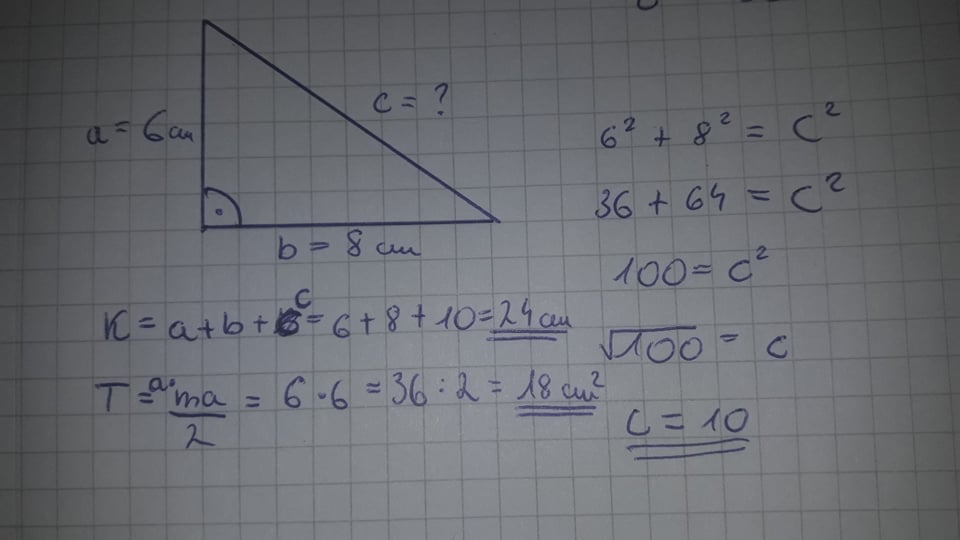 a = 6 cm
c = ?
b = 8 cm
6² + 8² = c²
36 + 64 = c²
100 = c²
√100 = c
c = 10
K = a + b + c = 6 + 8 + 10 = 24 cm
T = a · ma / 2 = 6 · 6 = 36 : 2 = 18 cm²